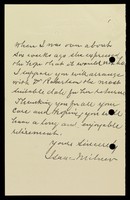 When I was own about
six weeks ago she expressed
the hope that it would
I suppose you will arrange
with Dr Robertson the most
suitable date for her return.
Thanking you for all your
care and hoping you will
have a long and enjoyable
retirement.
Yours Sincerely